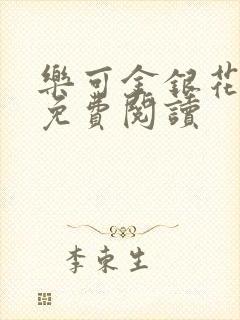 樂可金銀花
免費閱讀
李東生